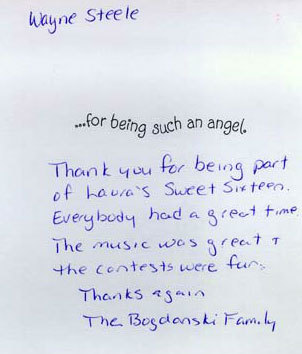 Wayne Steele
...for being such an angel.
Thank you for being part
of Laura's Sweet Sixteen.
Everybody had a great time.
The music was great +
the contests were fun.
Thanks again
The Bogdanski Family